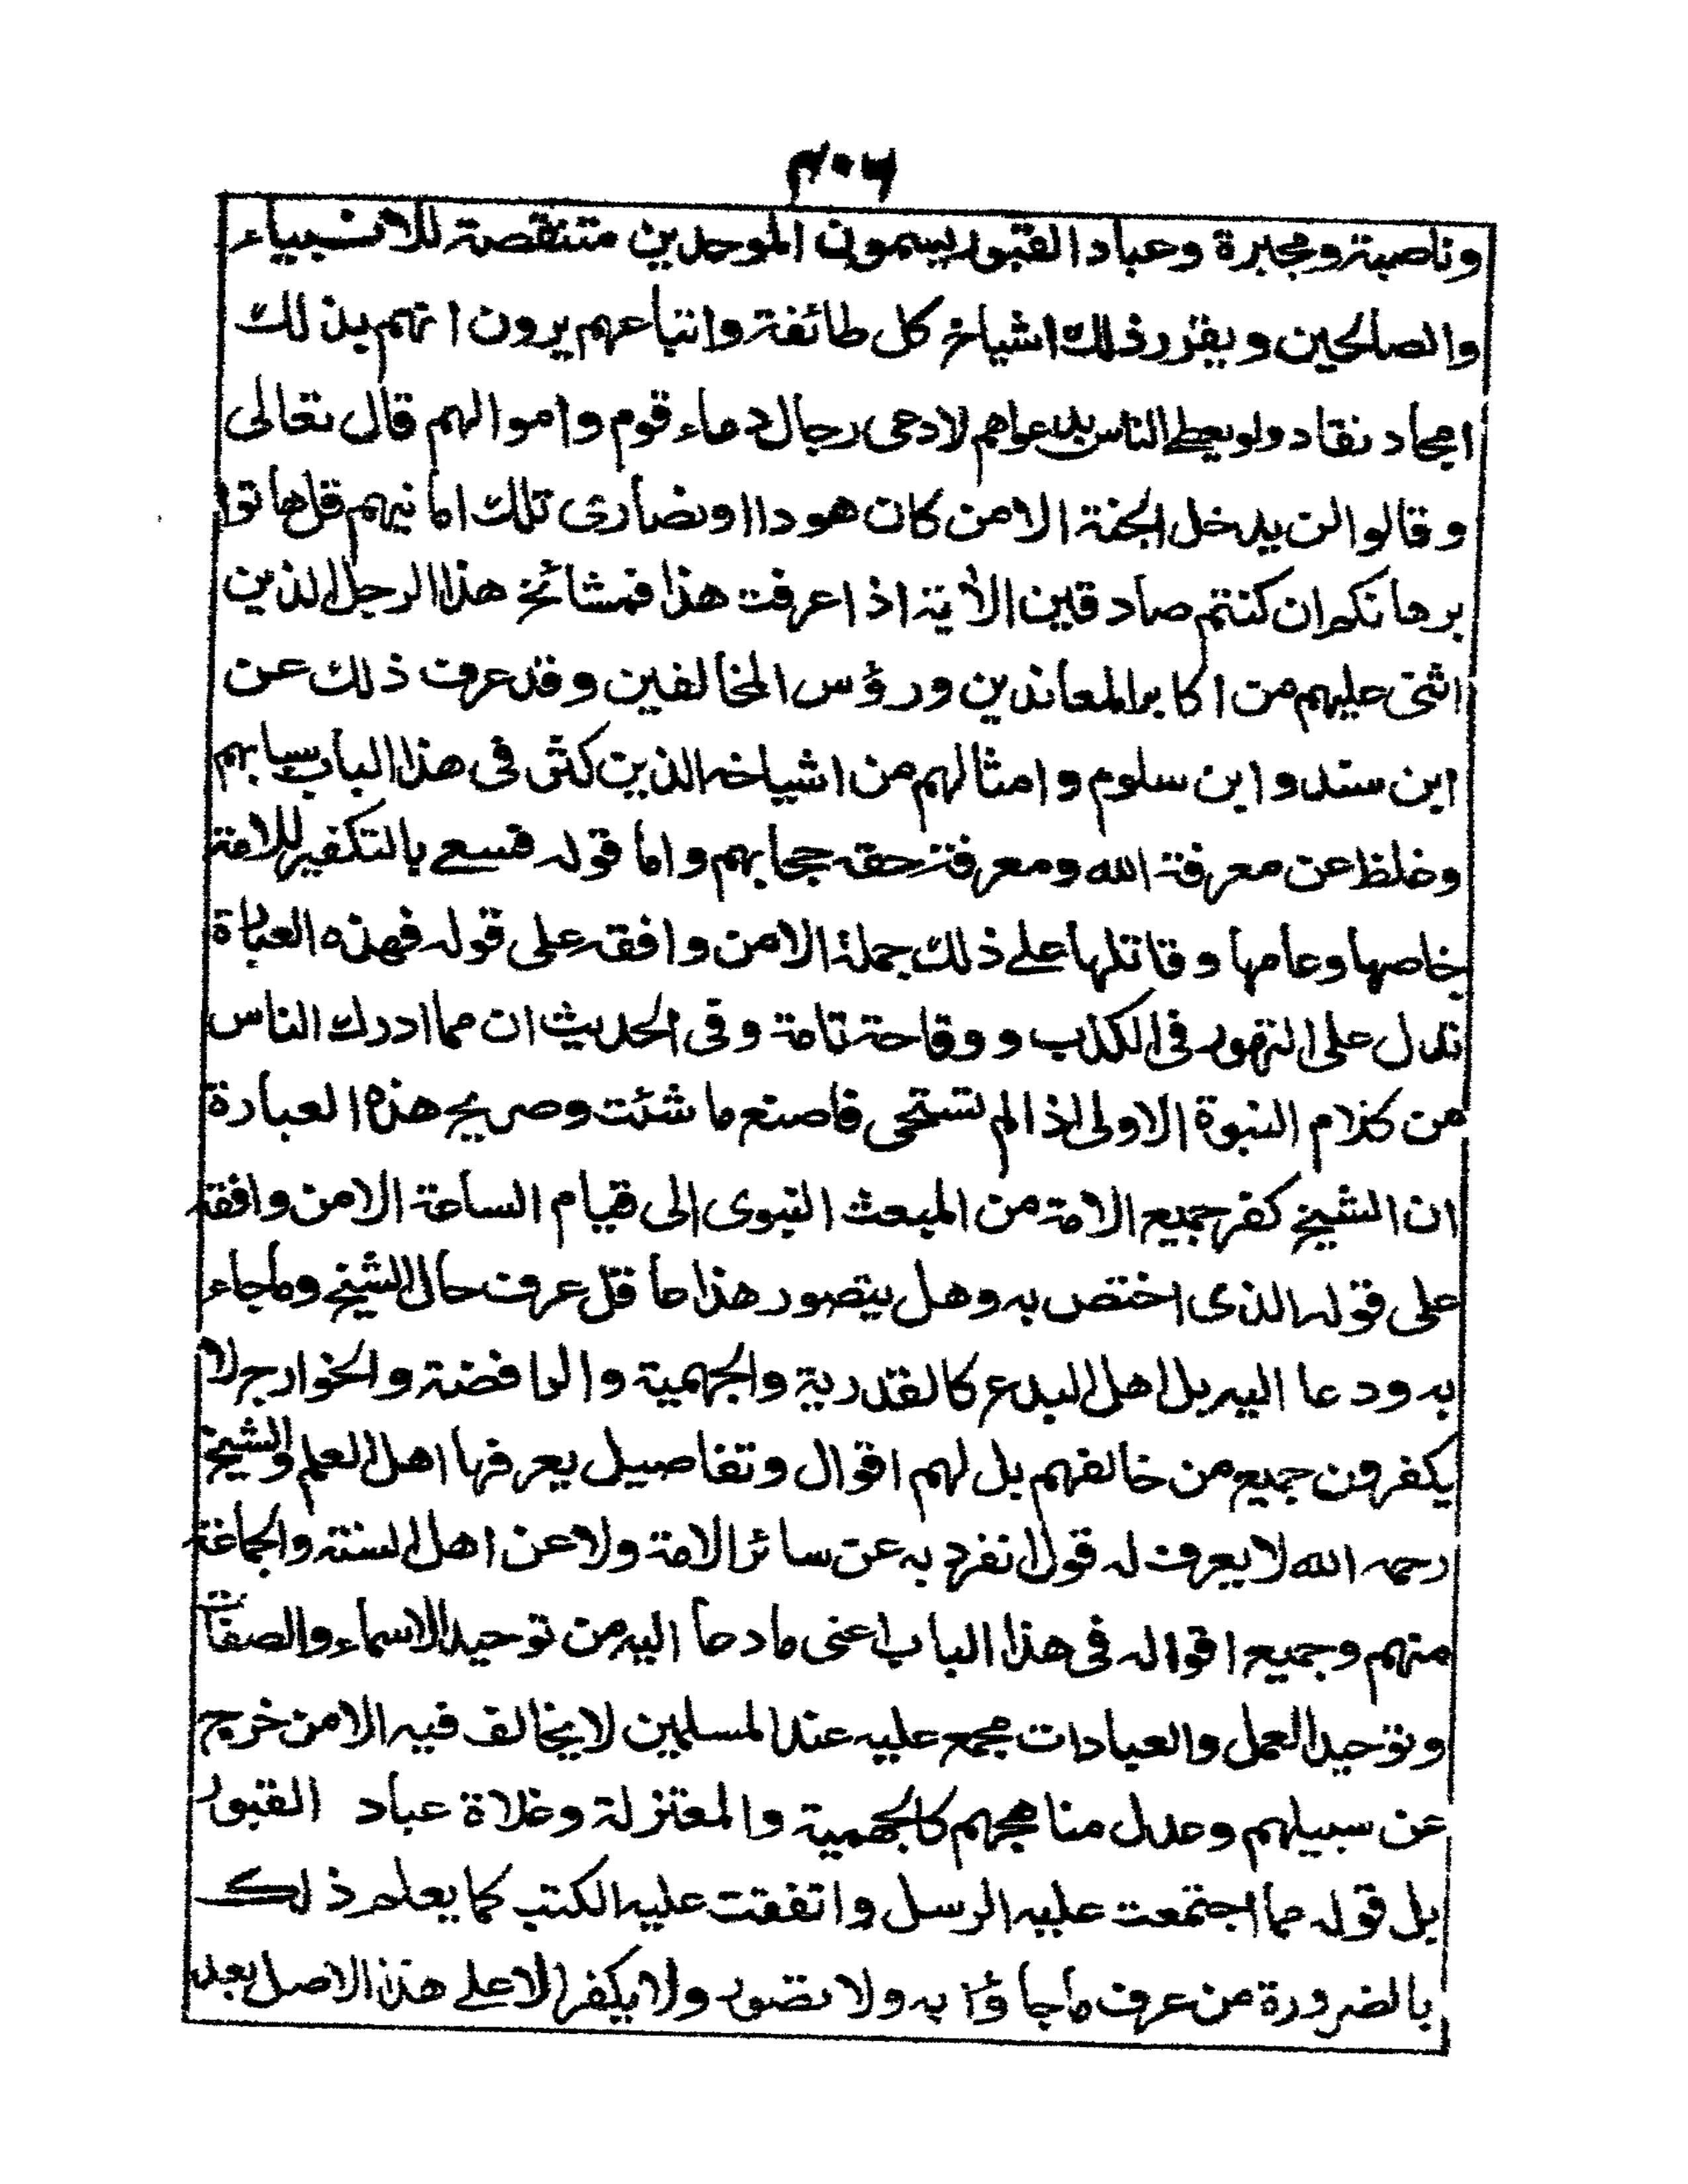 وناصبة ومجبرة وعباد القبور يسمون الموحدين متنقصة للانبياء
والصالحين ويقرر ذلك اشياخ كل طائفة واتباعهم يرون انهم بذلك
امجاد نقاد ولو يعطى الناس بدعواهم لادعى رجال دماء قوم واموالهم قال تعالى
وقالوا لن يدخل الجنة الا من كان هودا اونصارى تلك امانيهم قل هاتوا
برهانكم ان كنتم صادقين الأية اذا عرفت هذا فمشائخ هذا الرجل الذين
اثنى عليهم من اكابر المعاندين ورؤس المخالفين وقد عرف ذلك عن
ابن سند وابن سلوم وامثالهم من اشياخه الذين كثر فى هذا الباب سبابهم
وغلظ عن معرفة الله ومعرفة حقه حجابهم واما قوله فسعى بالتكفير للامة
خاصها وعامها وقاتلها على ذلك جملة الا من وافقه على قوله فهذه العبارة
تدل على التهور فى الكذب ووقاحة تامة وفى الحديث ان مما ادرك الناس
من كلام النبوة الاولى اذا لم تستحى فاصنع ما شئت وصريح هذه العبارة
ان الشيخ كفر جميع الامة من المبعث النبوى الى قيام الساعة الا من وافقه
على قوله الذى اختص به وهل يتصور هذا عاقل عرف حال الشيخ وماجاء
به ودعا اليه بل اهل البدع كالقدرية والجهمية والرافضة والخوارج لا
يكفرون جميع من خالفهم بل لهم اقوال وتفاصيل يعرفها اهل العلم والشيخ
رحمه الله لا يعرف له قول انفرد به عن سائر الامة ولا عن اهل السنة والجماعة
منهم وجميع اقواله فى هذا الباب اعنى ما دعا اليه من توحيد الاسماء والصفات
وتوحيد العمل والعبادات مجمع عليه عند المسلمين لا يخالف فيه الا من خرج
عن سبيلهم وعدل مناهجهم كالجهمية والمعتزلة وغلاة عباد القبور
بل قوله مما اجتمعت عليه الرسل واتفقت عليه الكتب كما يعلم ذلك
بالضرورة من عرف ماجاؤا به ولا تصور ولا يكفر الا على هذا الاصل بعد